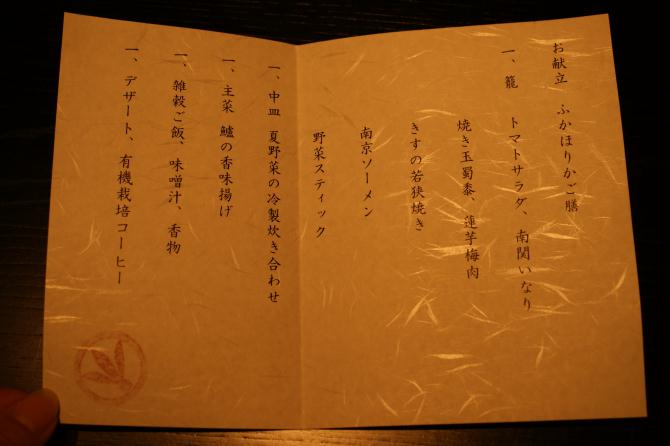 お献立　ふかほりかご膳
一、籠　トマトサラダ、南関いなり
焼き玉蜀黍、蓮芋梅肉
きすの若狭焼き
南京ソーメン
野菜スティック
一、中皿　夏野菜の冷製炊き合わせ
一、主菜　鱸の香味揚げ
一、雑穀ご飯、味噌汁、香物
一、デザート、有機栽培コーヒー